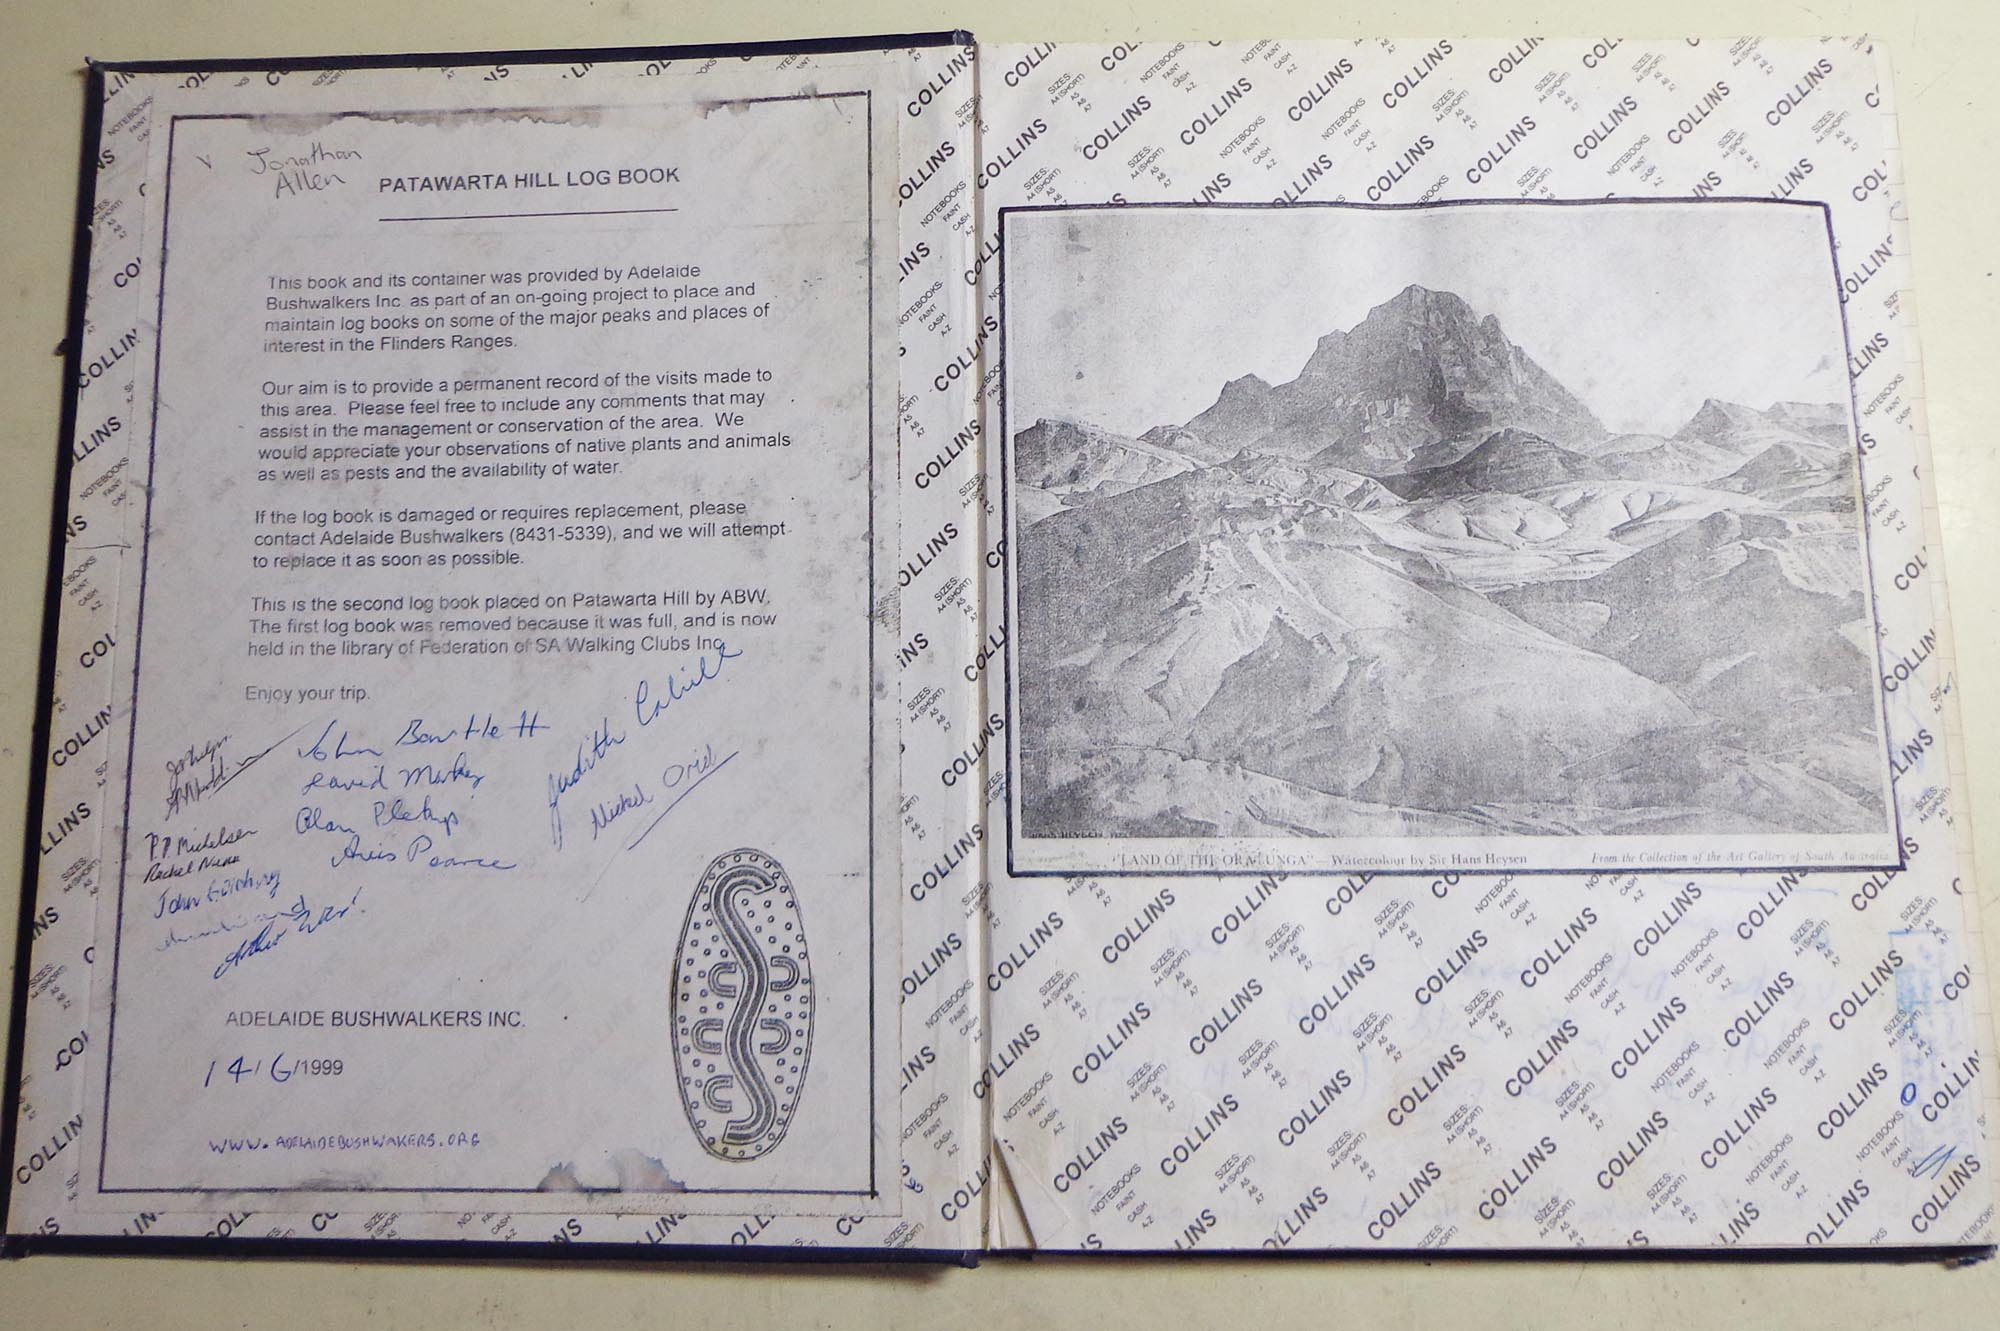 Jonathan
Allen
PATAWARTA HILL LOG BOOK
This book and its container was provided by Adelaide
Bushwalkers Inc. as part of an on-going project to place and
maintain log books on some of the major peaks and places of
interest in the Flinders Ranges.
Our aim is to provide a permanent record of the visits made to
this area. Please feel free to include any comments that may
assist in the management or conservation of the area. We
would appreciate your observations of native plants and animals
as well as pests and the availability of water.
If the log book is damaged or requires replacement, please
contact Adelaide Bushwalkers (8431-5339), and we will attempt
to replace it as soon as possible.
This is the second log book placed on Patawarta Hill by ABW.
The first log book was removed because it was full, and is now
held in the library of Federation of SA Walking Clubs Inc
Enjoy your trip.
John Bartlett
David
Alan
Avis Pearce
Judith Cahill
P.P. Michelsen
Rachel
John
ADELAIDE BUSHWALKERS INC.
14/6/1999
WWW.ADELAIDEBUSHWAKERS.ORG
HANS HEYSEN
"LAND OF THE ORATUNGA" — Watercolour by Sir Hans Heysen
From the Collection of the Art Gallery of South Australia
COLLINS
NOTEBOOKS
FAINT
CASH
A-Z
SIZES:
A4 (SHORT)
A5
A6
A7